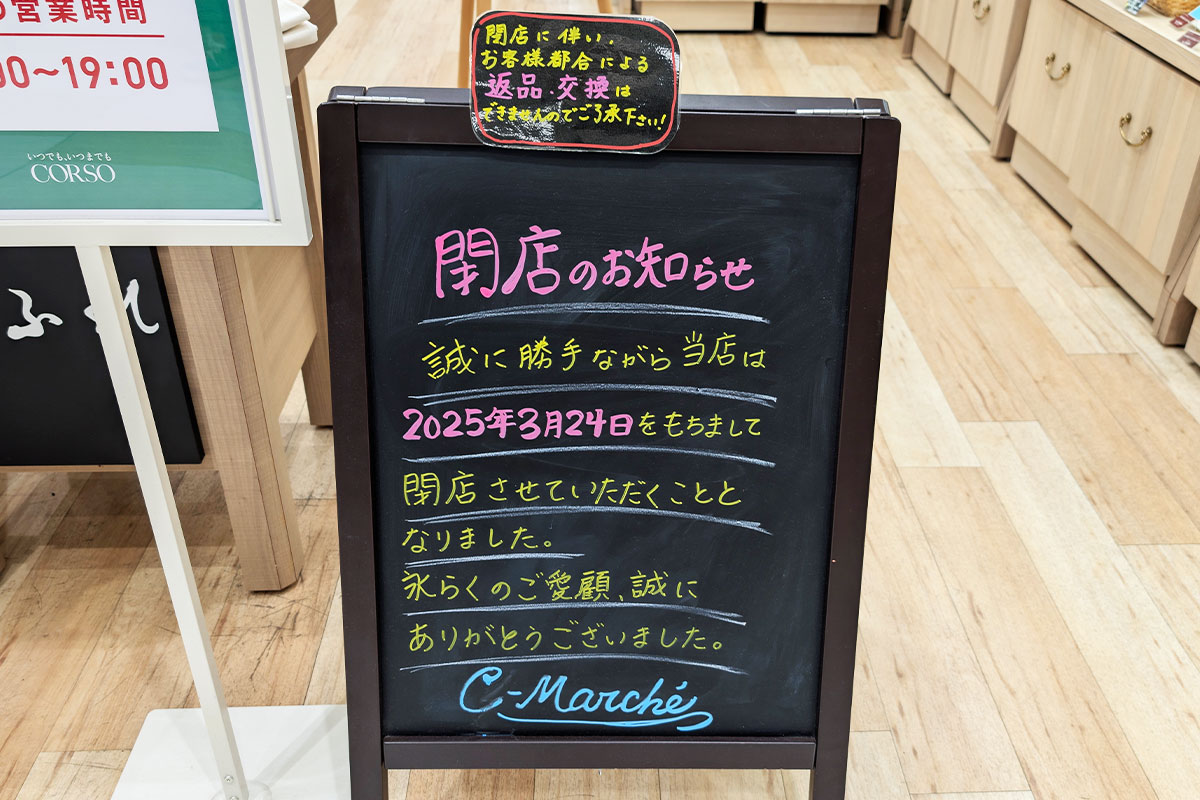 営業時間
00〜19:00
いつでも、いつまでも
CORSO
ふれ
閉店に伴い、
お客様都合による
返品・交換は
できませんのでご了承下さい!
閉店のお知らせ
誠に勝手ながら当店は
2025年3月24日をもちまして
閉店させていただくことと
なりました。
永らくのご愛顧、誠に
ありがとうございました。
C-Marché